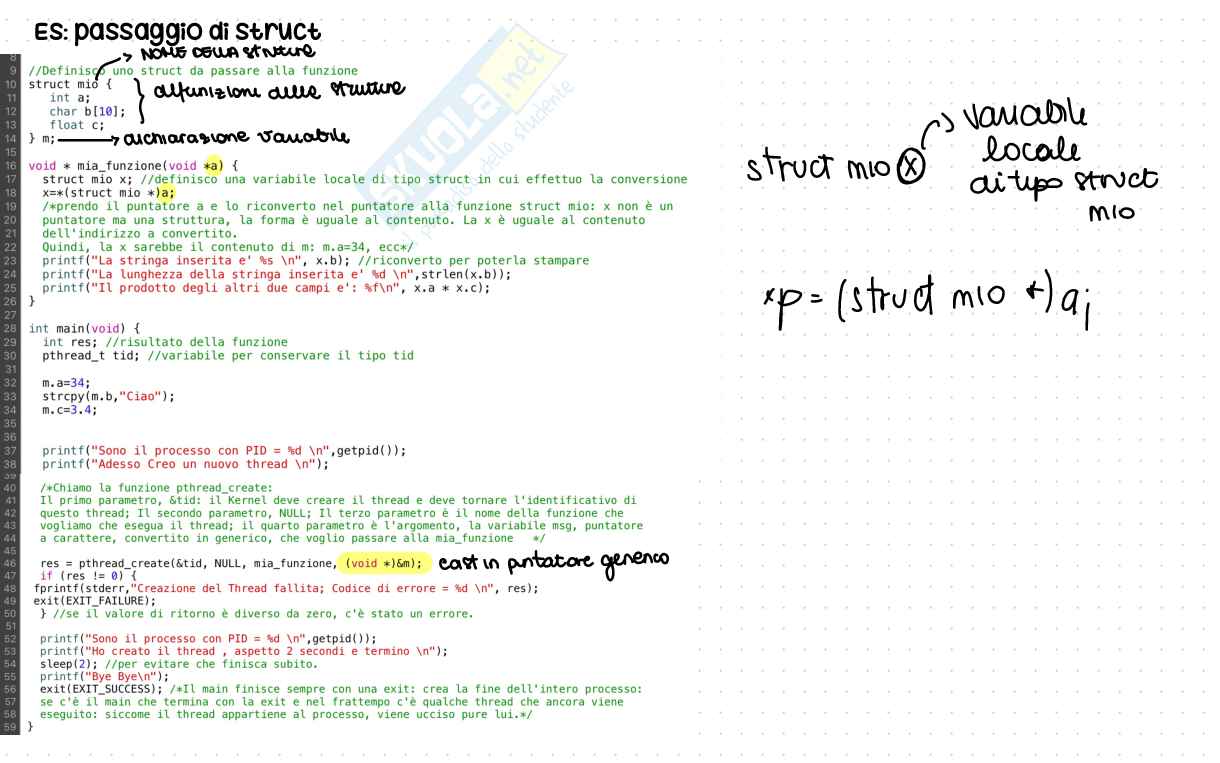 ES: passaggio di struct
NOME DELLA STRUTTURA
8
9 //Definisco uno struct da passare alla funzione
10 struct mio {
11 int a;
12 char b[10];
13 float c;
14 } m;
difinizioni delle strutture
dichiarazione variabile
15
16 void * mia_funzione(void *a) {
17 struct mio x; //definisco una variabile locale di tipo struct in cui effettuo la conversione
18 x=*(struct mio *)a;
19 /*prendo il puntatore a e lo riconverto nel puntatore alla funzione struct mio: x non è un
20 puntatore ma una struttura, la forma è uguale al contenuto. La x è uguale al contenuto
21 dell'indirizzo a convertito.
22 Quindi, la x sarebbe il contenuto di m: m.a=34, ecc*/
23 printf("La stringa inserita e' %s \n", x.b); //riconverto per poterla stampare
24 printf("La lunghezza della stringa inserita e' %d \n",strlen(x.b));
25 printf("Il prodotto degli altri due campi e': %f\n", x.a * x.c);
26 }
27
28 int main(void) {
29 int res; //risultato della funzione
30 pthread_t tid; //variabile per conservare il tipo tid
31
32 m.a=34;
33 strcpy(m.b,"Ciao");
34 m.c=3.4;
35
36
37 printf("Sono il processo con PID = %d \n",getpid());
38 printf("Adesso Creo un nuovo thread \n");
39
40 /*Chiamo la funzione pthread_create:
41 Il primo parametro, &tid: il Kernel deve creare il thread e deve tornare l'identificativo di
42 questo thread; Il secondo parametro, NULL; Il terzo parametro è il nome della funzione che
43 vogliamo che esegua il thread; il quarto parametro è l'argomento, la variabile msg, puntatore
44 a carattere, convertito in generico, che voglio passare alla mia_funzione */
45
46 res = pthread_create(&tid, NULL, mia_funzione, (void *)&m); cast in puntatore generico
47 if (res != 0) {
48 fprintf(stderr,"Creazione del Thread fallita; Codice di errore = %d \n", res);
49 exit(EXIT_FAILURE);
50 } //se il valore di ritorno è diverso da zero, c'è stato un errore.
51
52 printf("Sono il processo con PID = %d \n",getpid());
53 printf("Ho creato il thread , aspetto 2 secondi e termino \n");
54 sleep(2); //per evitare che finisca subito.
55 printf("Bye Bye\n");
56 exit(EXIT_SUCCESS); /*Il main finisce sempre con una exit: crea la fine dell'intero processo:
57 se c'è il main che termina con la exit e nel frattempo c'è qualche thread che ancora viene
58 eseguito: siccome il thread appartiene al processo, viene ucciso pure lui.*/
59 }
struct mio x
variabile
locale
di tipo struct
mio
*p = (struct mio *) a;
SKUOLA.net
dello studente